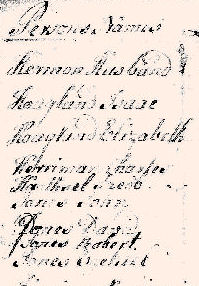 Persons Names
Hermon Husband
Hoagland Isaac
Hoagland Elizabeth
Herriman Charles
Jones John
Jones David
Jones Robert
Jones